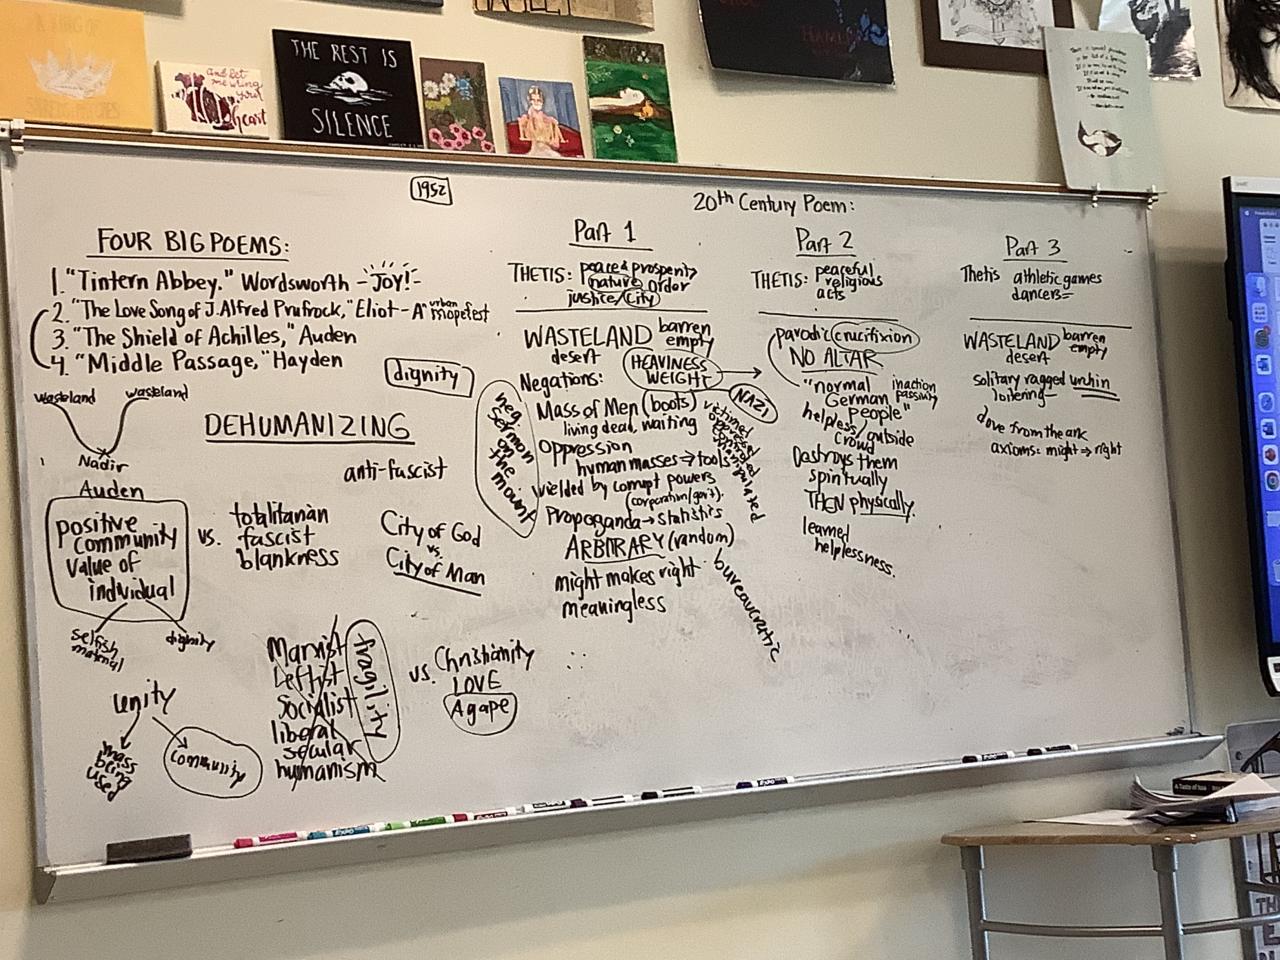 and let
me wring
your
heart
THE REST IS
SILENCE
1952
20th Century Poem:
FOUR BIG POEMS:
1. "Tintern Abbey." Wordsworth - JOY! -
2. "The Love Song of J. Alfred Prufrock," Eliot - A urban
3. "The Shield of Achilles," Auden
4. "Middle Passage," Hayden
wasteland wasteland
Nadir
Auden
dignity
DEHUMANIZING
anti-fascist
positive
community
value of
individual
vs.
totalitarian
fascist
blankness
selfish
material
dignity
City of God
vs.
City of Man
unity
mass
being
used
community
Marxist
Leftist
Socialist
liberal
secular
humanism
fragility
vs. Christianity
LOVE
Agape
Part 1
THETIS: peace & prosperity
nature order
justice/city
WASTELAND barren
empty
desert
HEAVINESS
WEIGHT
Negations:
NAZI
neg.
sermon
on
the
mount
Mass of Men (boots)
living dead, waiting
oppression
human masses → tools
wielded by corrupt powers
(corporation/govt).
Propoganda → statistics
ARBITRARY (random)
might makes right
meaningless
victimized
oppressed
controlled
manipulated
bureaucratic
Part 2
THETIS: peaceful
religious
acts
parodic crucifixion
NO ALTAR
"normal
German
people"
inaction
passivity
helpless/outside
crowd
Destroys them
spiritually
THEN physically.
learned
helplessness.
Part 3
Thetis athletic games
dancers=
WASTELAND barren
empty
desert
solitary ragged urchin
loitering-
dove from the ark
axioms: might → right